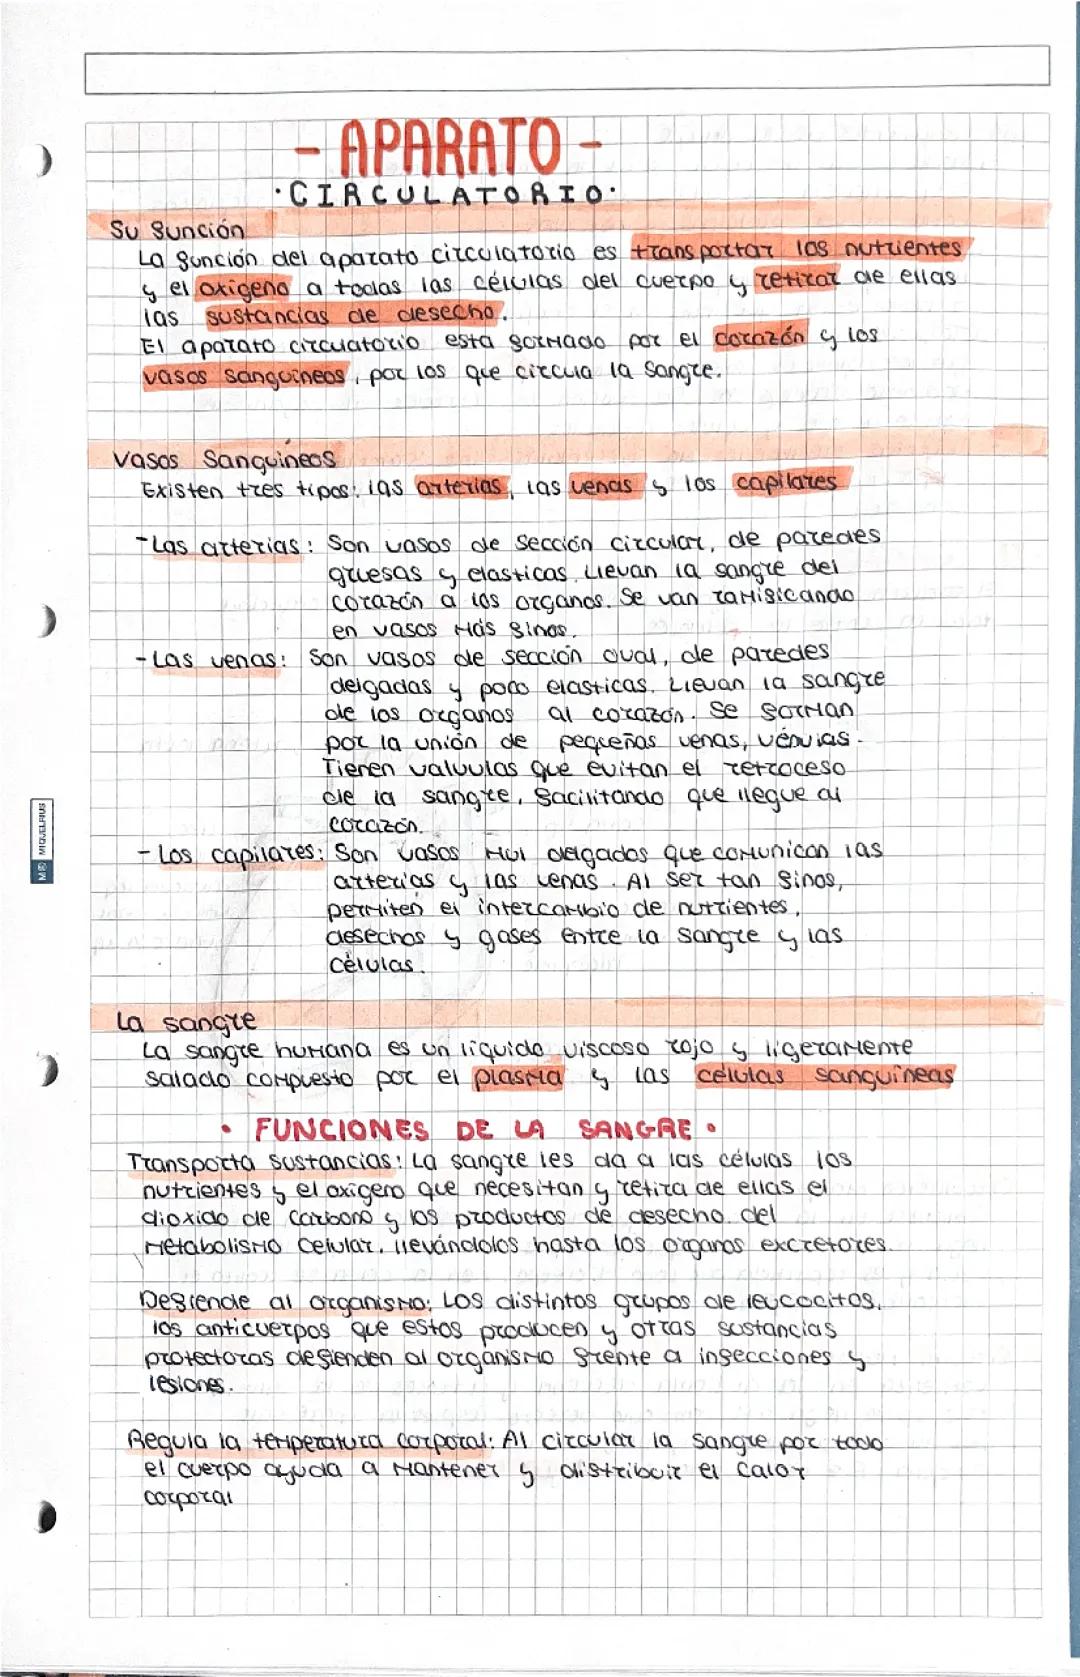 - APARATO -
·CIRCULATORIO·
Su función
La función del aparato circulatorio es transportar los nutrientes
y el oxigeno a todas las células del cuerpo y retirar de ellas
las sustancias de desecho.
El aparato circuatorio esta formado por el corazón y los
vasos sanguineos, por los que circula la sangre.
Vasos Sanguineos
Existen tres tipos: las arterias, las venas y los capilares
- Las arterias: Son vasos de sección circular, de paredes
gruesas y elasticas. Llevan la sangre del
corazón a los organos. Se van ramificando
en vasos más finos.
- Las venas: Son vasos de sección oval, de paredes
delgadas y poco elasticas. Llevan la sangre
de los organos al corazón. Se forman
por la unión de pequeñas venas, vénulas.
Tienen valvulas que evitan el retroceso
de la sangre, facilitando que llegue al
corazón.
- Los capilares: Son vasos mui delgados que comunican las
arterias y las venas. Al ser tan finos,
permiten el intercambio de nutrientes,
desechos y gases entre la sangre y las
células.
La sangre
La sangre humana es un liquido viscoso rojo y ligeramente
salado compuesto por el plasma y las células sanguineas
• FUNCIONES DE LA SANGRE •
Transporta sustancias: La sangre les da a las células los
nutrientes y el oxigeno que necesitan y retira de ellas el
dioxido de carbono y los productos de desecho del
metabolismo celular, llevándolos hasta los organos excretores.
Defiende al organismo: Los distintos grupos de leucocitos,
los anticuerpos que estos producen y otras sustancias
protectoras defienden al organismo frente a infecciones y
lesiones.
Regula la temperatura corporal: Al circular la sangre por todo
el cuerpo ayuda a mantener y distribuir el calor
corporal
MIQUELRIUS